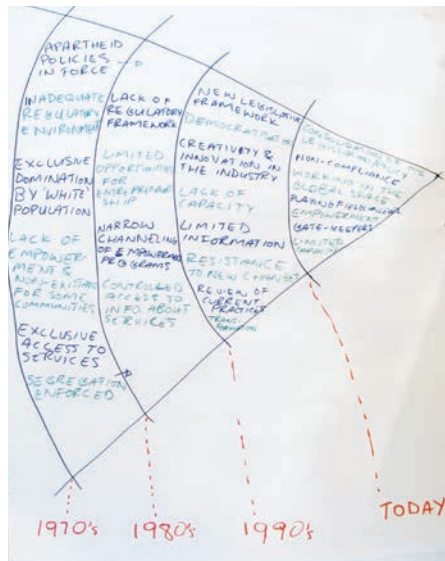 APARTHEID
POLICIES
IN FORCE
INADEQUATE
REGULATORY
ENVIRONMENT
EXCLUSIVE
DOMINATION
BY 'WHITE'
POPULATION
LACK OF
EMPOWER-
MENT &
FOR SOME
COMMUNITIES
EXCLUSIVE
ACCESS TO
SERVICES
SEGREGATION
ENFORCED
LACK OF
REGULATORY
FRAMEWORK
LIMITED
OPPORTUNITIES
FOR
SHIP
NARROW
CHANNELING
OF EMPOWERMENT
PROGRAMS
CONTROLLED
ACCESS TO
INFO ABOUT
SERVICES
NEW LEGISLATIVE
FRAMEWORK
CREATIVITY &
INNOVATION IN
THE INDUSTRY
LACK OF
CAPACITY
LIMITED
INFORMATION
RESISTANCE
TO NEW CHANGES
REVIEW OF
CURRENT
PRACTICES
NON-COMPLIANCE
WORKING IN THE
GLOBAL SPACE
EMPOWERMENT
GATE-KEEPERS
LIMITED
1970's
1980's
1990's
TODAY